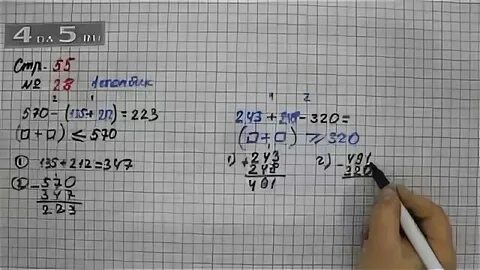 4 на 5.ru
Стр. 55
№ 28 1 столбик
1 2
570 - (135 + 212) = 223
(□ + □) ≤ 570
① 135 + 212 = 347
② - 570
347
223
1 2
243 + 248 - 320 =
(□ + □) ≥ 320
1) + 243
248
491
2) - 491
320